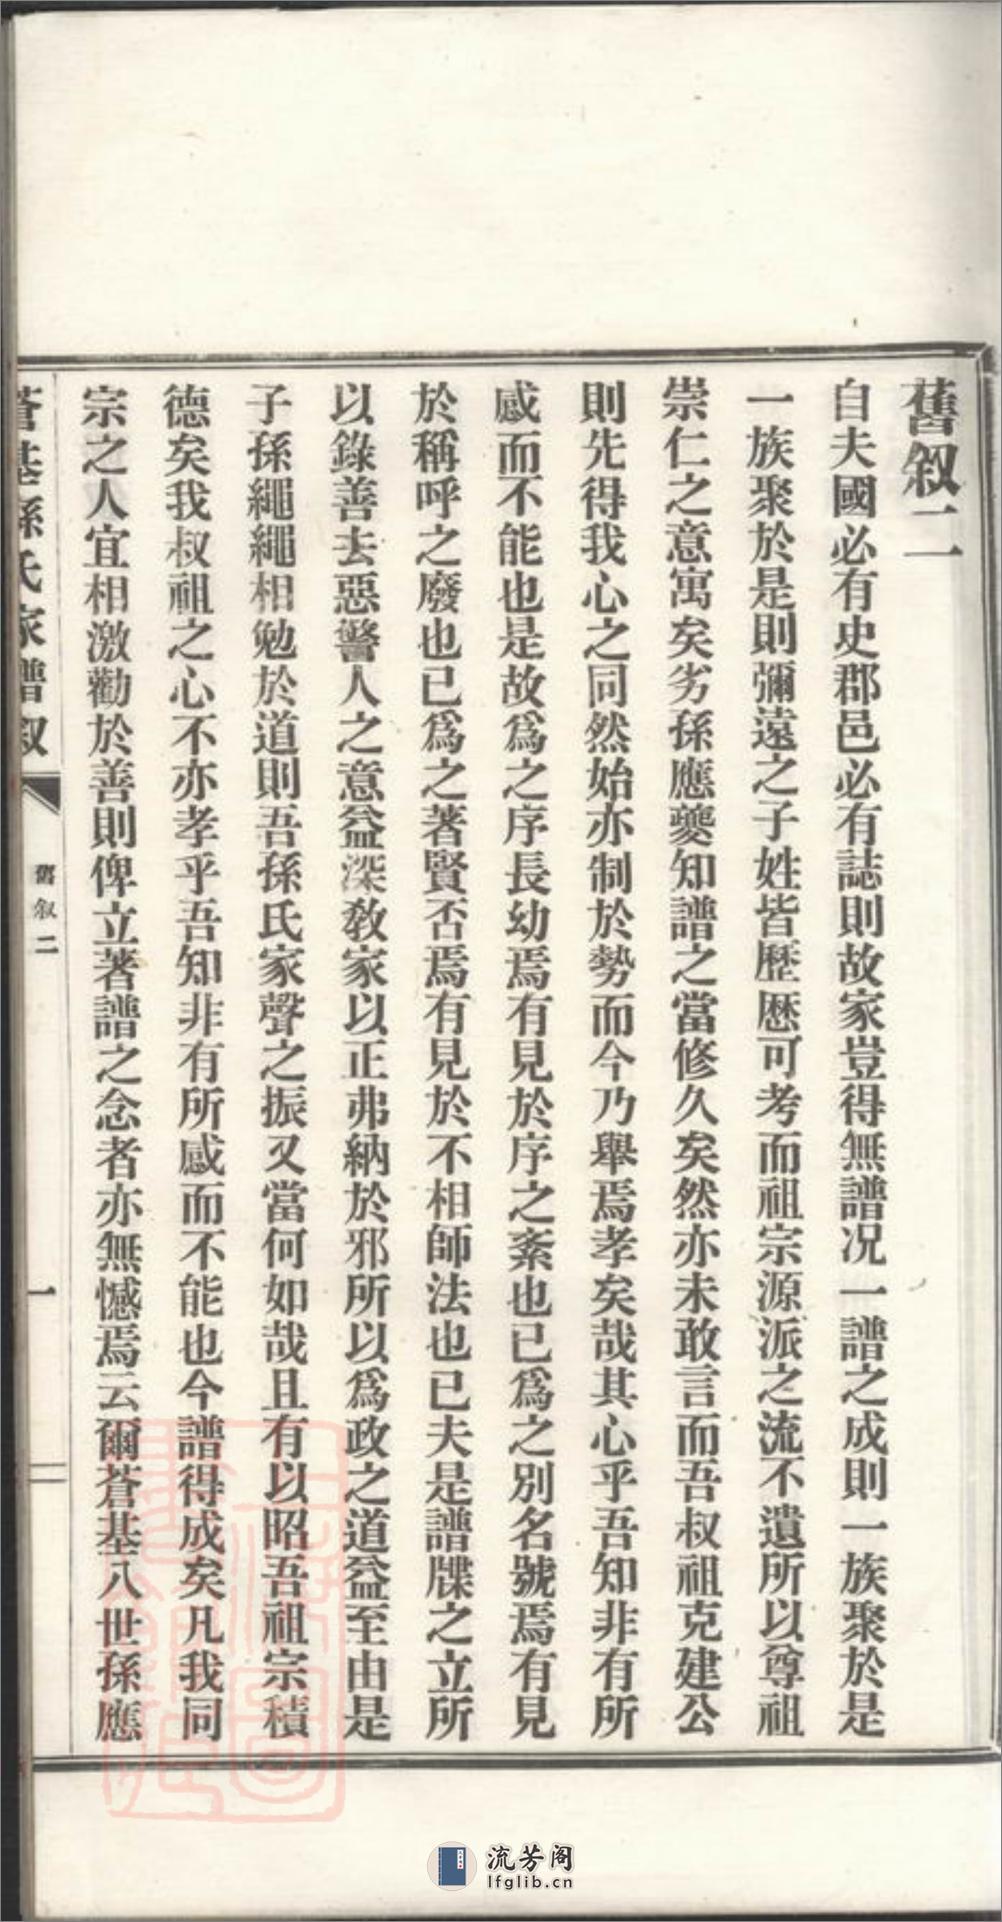 舊叙二
自夫國必有史郡邑必有誌則故家豈得無譜况一譜之成則一族聚於是
一族聚於是則彌遠之子姓皆歷歷可考而祖宗源派之流不遺所以尊祖
崇仁之意寓矣劣孫應夔知譜之當修久矣然亦未敢言而吾叔祖克建公
則先得我心之同然始亦制於勢而今乃舉焉孝矣哉其心乎吾知非有所
感而不能也是故爲之序長幼焉有見於序之紊也已爲之別名號焉有見
於稱呼之廢也已爲之著賢否焉有見於不相師法也已夫是譜牒之立所
以錄善去惡警人之意益深教家以正弗納於邪所以爲政之道益至由是
子孫繩繩相勉於道則吾孫氏家聲之振又當何如哉且有以昭吾祖宗積
德矣我叔祖之心不亦孝乎吾知非有所感而不能也今譜得成矣凡我同
宗之人宜相激勸於善則俾立著譜之念者亦無憾焉云爾蒼基八世孫應
蒼基孫氏家譜叙
舊叙二
一
流芳阁
lfglib.cn